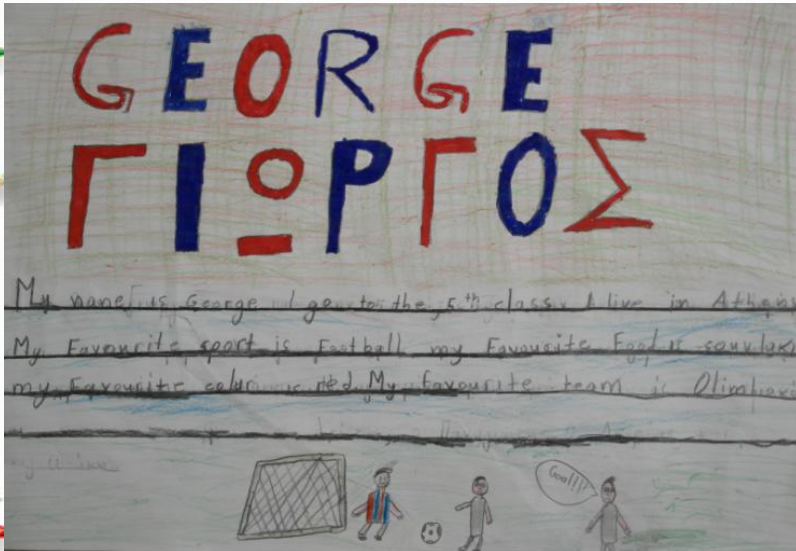 GEORGE
ΓΙΩΡΓΟΣ
My name is George I go to the 5th class I live in Athens
My Favourite sport is Football my Favourite Food is souvlaki
my Favourite colur is red My favourite team is
Goal!!!